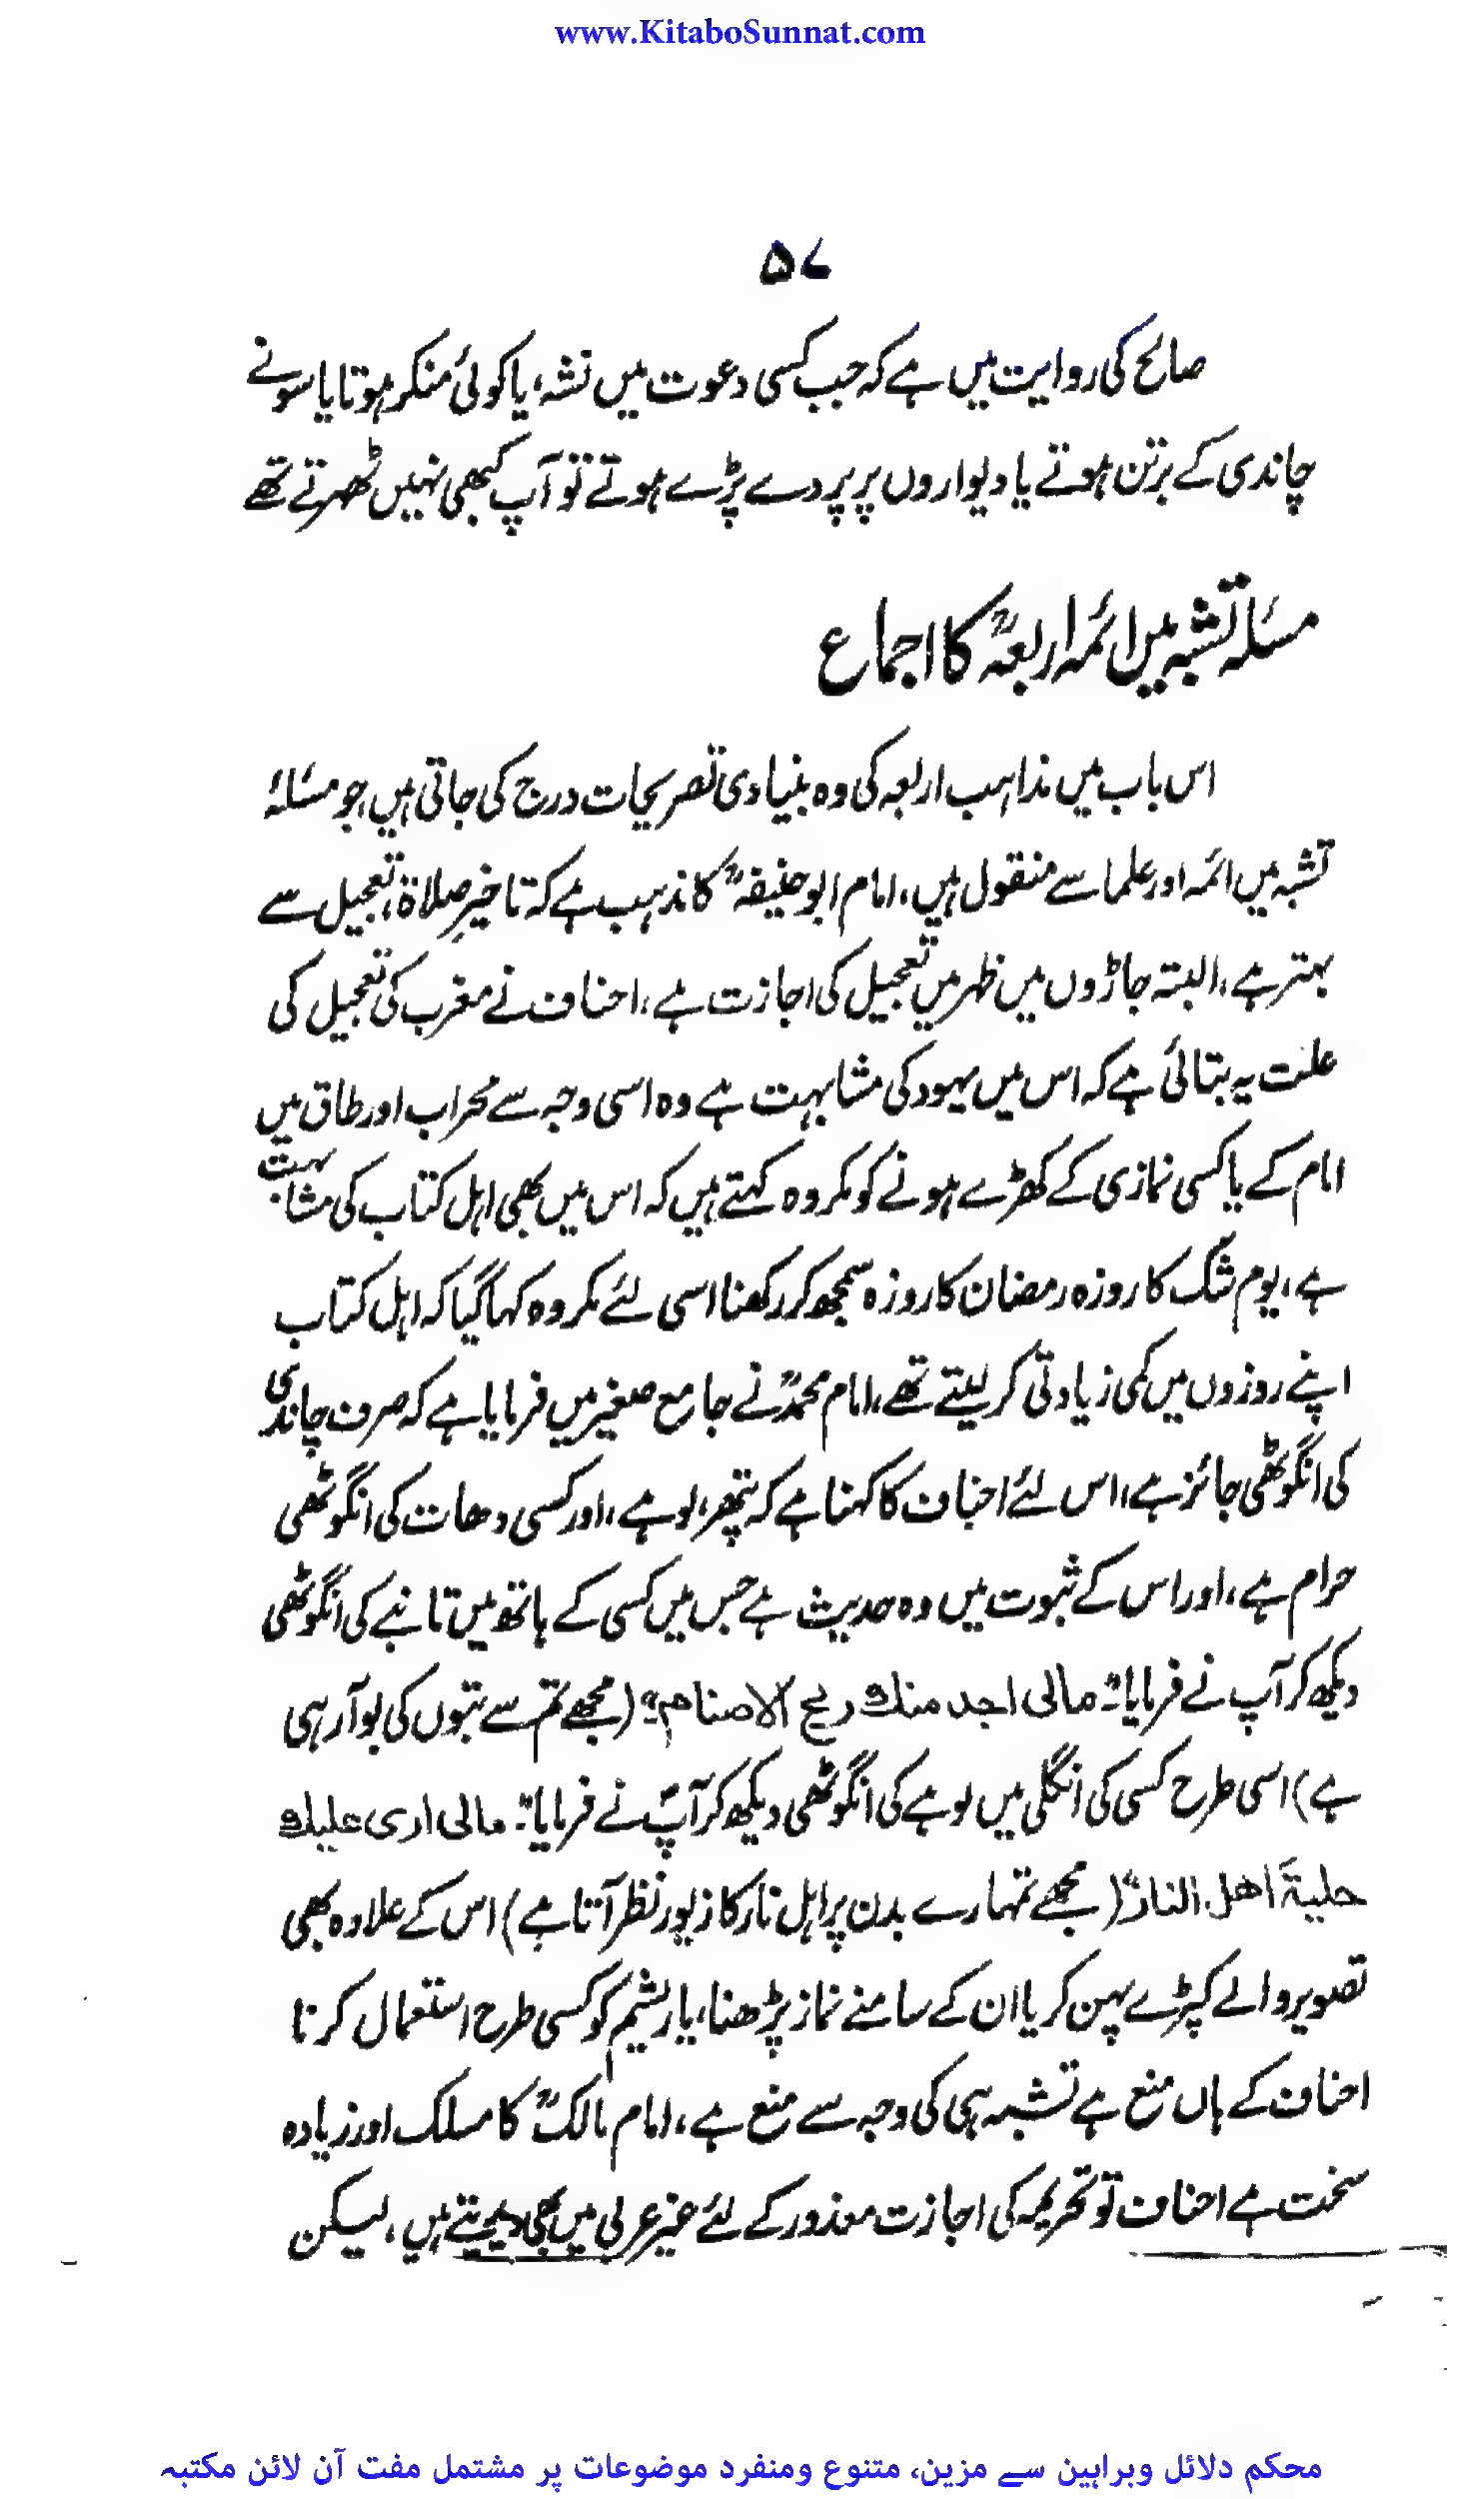 www.KitaboSunnat.com
۵۷
صالح کی روایت میں ہے کہ جب کسی دعوت میں نشہ، یا کوئی منکر ہوتا یا سونے
چاندی کے برتن ہوتے یا دیواروں پر پردے پڑے ہوتے تو آپ کبھی نہیں ٹھہرتے تھے
مسئلہ تشبہ میں ائمہ اربعہؒ کا اجماع
اس باب میں مذاہب اربعہ کی وہ بنیادی تصریحات درج کی جاتی ہیں جو مسئلۂ
تشبہ میں ائمہ اور علما سے منقول ہیں، امام ابو حنیفہؒ کا مذہب ہے کہ تاخیرِ صلاۃ، تعجیل سے
بہتر ہے، البتہ جاڑوں میں ظہر میں تعجیل کی اجازت ہے، احناف نے مغرب کی تعجیل کی
علت یہ بتائی ہے کہ اس میں یہود کی مشابہت ہے وہ اسی وجہ سے محراب اور طاق میں
امام کے یا کسی نمازی کے کھڑے ہونے کو مکروہ کہتے ہیں کہ اس میں بھی اہل کتاب کی مشابہت
ہے، یوم شک کا روزہ رمضان کا روزہ سمجھ کر رکھنا اسی لئے مکروہ کہا گیا کہ اہل کتاب
اپنے روزوں میں کمی زیادتی کر لیتے تھے، امام محمدؒ نے جامع صغیر میں فرمایا ہے کہ صرف چاندی
کی انگوٹھی جائز ہے، اس لئے احناف کا کہنا ہے کہ پتھر، لوہے، اور کسی دھات کی انگوٹھی
حرام ہے، اور اس کے ثبوت میں وہ حدیث ہے جس میں کسی کے ہاتھ میں تانبے کی انگوٹھی
دیکھ کر آپ نے فرمایا: "مالی اجد منك ریح الاصنام" (مجھے تم سے بتوں کی بو آ رہی
ہے) اسی طرح کسی کی انگلی میں لوہے کی انگوٹھی دیکھ کر آپؐ نے فرمایا: "مالی اری علیك
حلیۃ اهل النار" (مجھے تمہارے بدن پر اہل نار کا زیور نظر آتا ہے) اس کے علاوہ بھی
تصویر والے کپڑے پہن کر یا ان کے سامنے نماز پڑھنا، یا ریشم کو کسی طرح استعمال کرنا
احناف کے ہاں منع ہے تشبہ ہی کی وجہ سے منع ہے، امام مالکؒ کا مسلک اور زیادہ
سخت ہے احناف تو تحریمہ کی اجازت معذور کے لئے غیر عربی میں بھی دیتے ہیں، لیکن
محکم دلائل وبراہین سے مزین، متنوع ومنفرد موضوعات پر مشتمل مفت آن لائن مکتبہ